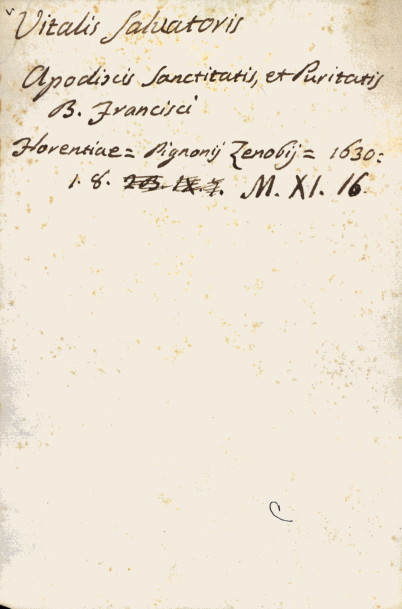 Vitalis Salvatoris
Apodixis Sanctitatis, et Puritatis
B. Francisci
Florentiae = Pignonij Zenobij = 1630:
1. 8. M. XI. 16.
C